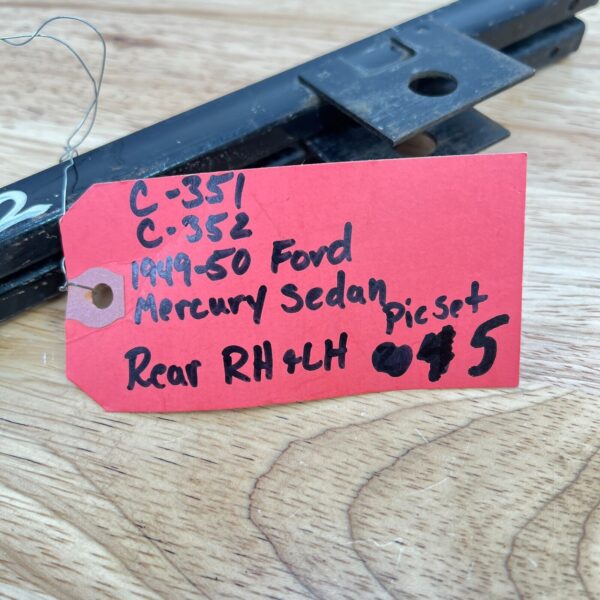 C-351
C-352
1949-50 Ford
Mercury Sedan
Pic set
Rear RH & LH 45
2